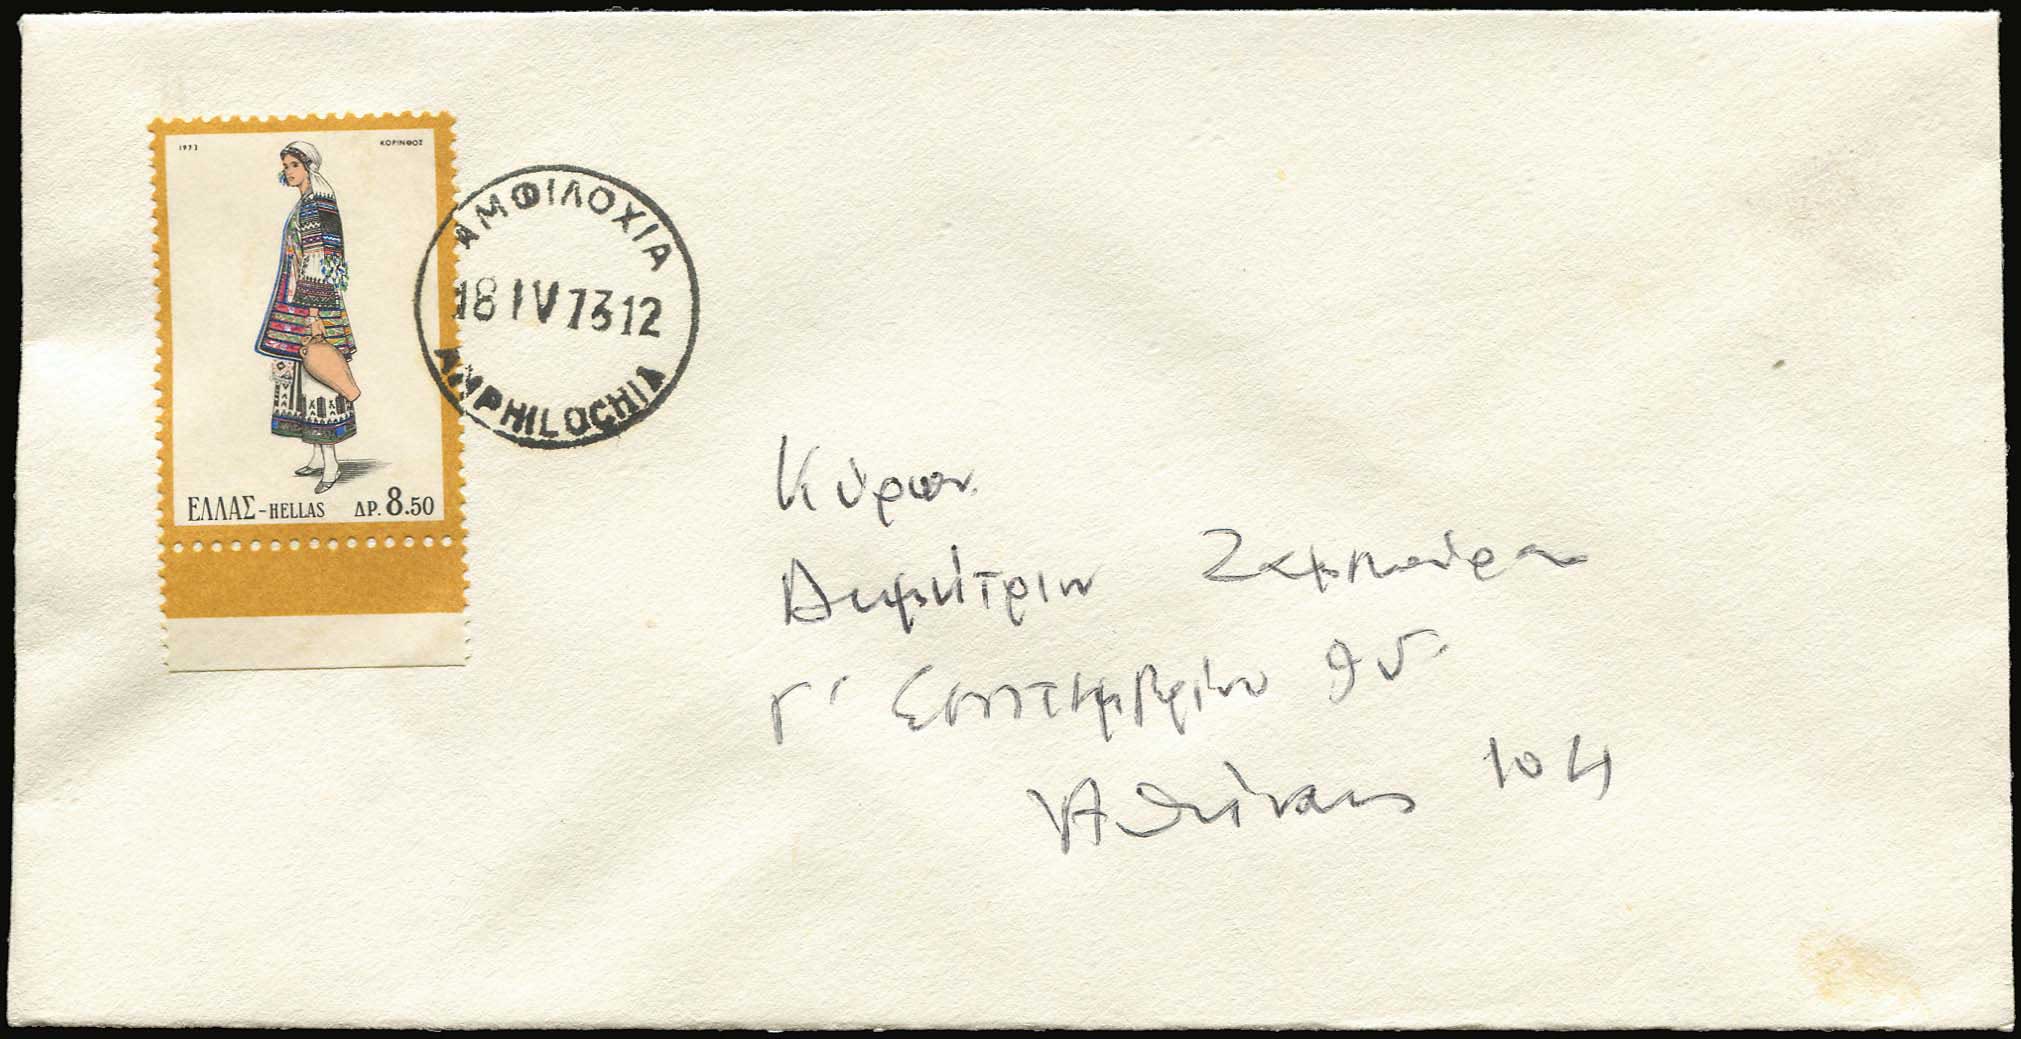 1973 ΚΟΡΙΝΘΟΣ
ΕΛΛΑΣ-HELLAS ΔΡ. 8.50
ΑΜΦΙΛΟΧΙΑ
18 IV 73 12
AMPHILOCHIA
Κύριον
Δημήτριον
Γ' Σεπτεμβρίου 95
Αθήνας 104